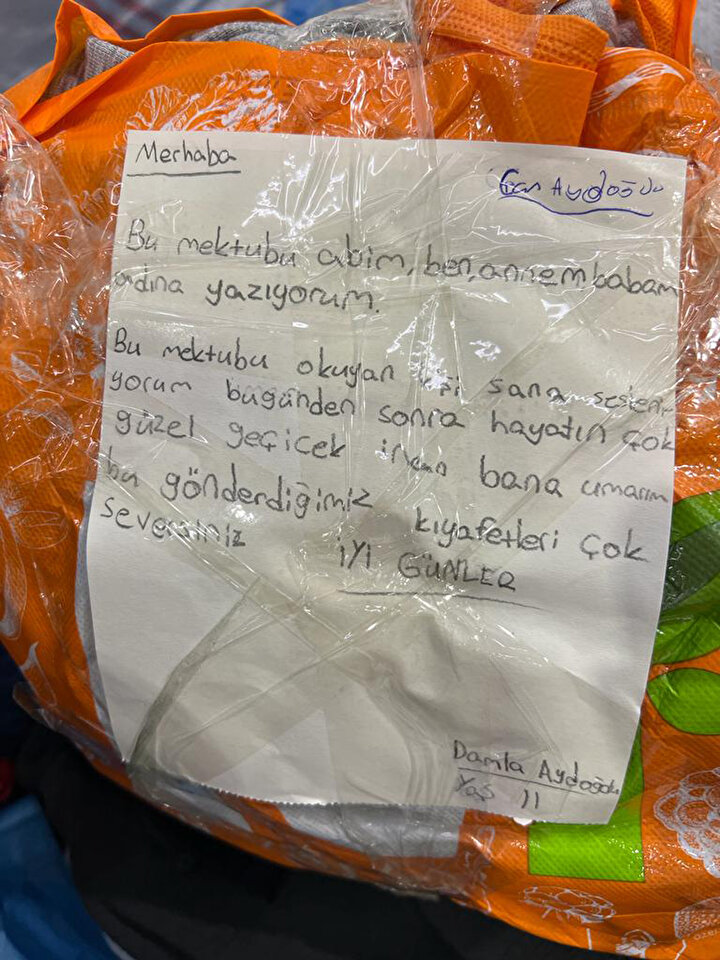 Merhaba
Aydoğdu
Bu mektubu abim, ben, annem babam
adına yazıyorum.
Bu mektubu okuyan kişi sana sesleni
yorum bugünden sonra hayatın çok
güzel geçicek inan bana umarım
bu gönderdiğimiz kıyafetleri çok
seversiniz
İYİ GÜNLER
Damla Aydoğdu
Yaş 11